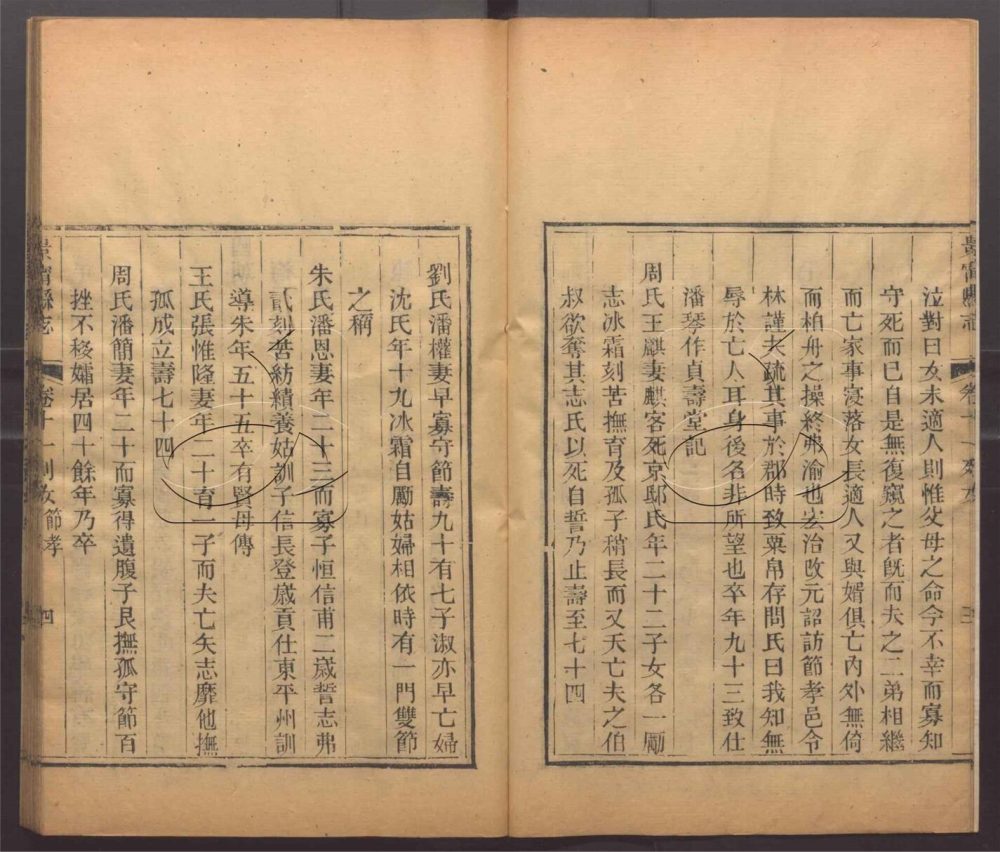 景甯縣志
卷十一 列女
泣對曰女未適人則惟父母之命今不幸而寡知
守死而已自是無復窺之者旣而夫之二弟相繼
而亡家事寖落女長適人又與婿俱亡內外無倚
而柏舟之操終弗渝也宏治改元詔訪節孝邑令
林謹夫疏其事於郡時致粟帛存問氏曰我知無
辱於亡人耳身後名非所望也卒年九十三致仕
潘琴作貞壽堂記
周氏王麒妻麒客死京邸氏年二十二子女各一勵
志冰霜刻苦撫育及孤子稍長而又夭亡夫之伯
叔欲奪其志氏以死自誓乃止壽至七十四
劉氏潘權妻早寡守節壽九十有七子淑亦早亡婦
沈氏年十九冰霜自勵姑婦相依時有一門雙節
之稱
朱氏潘恩妻年二十三而寡子恒信甫二歲誓志弗
貳刻苦紡績養姑訓子信長登歲貢仕東平州訓
導朱年五十五卒有賢母傳
王氏張惟隆妻年二十育一子而夫亡矢志靡他撫
孤成立壽七十四
周氏潘簡妻年二十而寡得遺腹子艮撫孤守節百
挫不移孀居四十餘年乃卒
景甯縣志
卷十一 列女 節孝
四